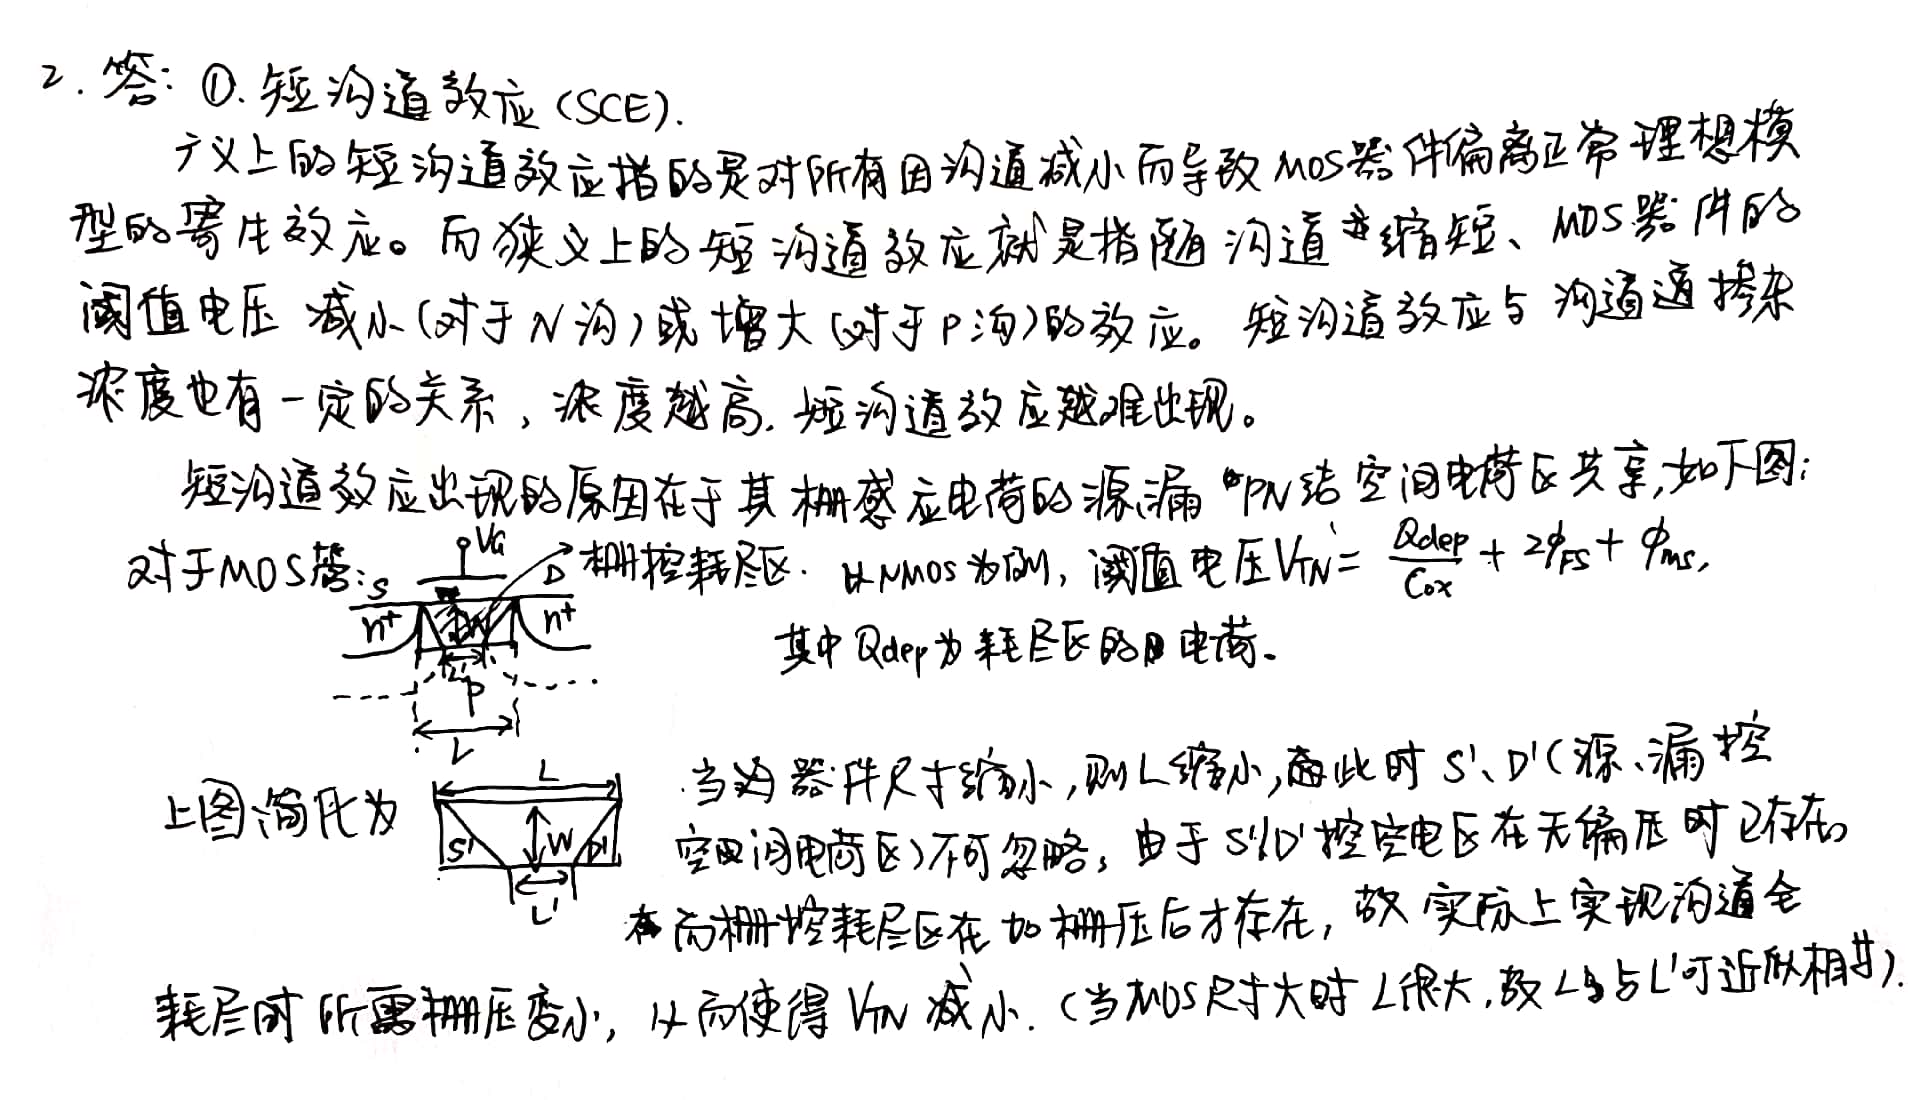 2. 答: ①. 短沟道效应(SCE).
广义上的短沟道效应指的是对所有因沟道减小而导致MOS器件偏离正常理想模
型的寄生效应。而狭义上的短沟道效应就是指随沟道缩短、MOS器件的
阈值电压减小(对于N沟)或增大(对于P沟)的效应。短沟道效应与沟道道掺杂
浓度也有一定的关系,浓度越高.短沟道效应越难出现。
短沟道效应出现的原因在于其栅感应电荷的源、漏PN结空间电荷区共享,如下图:
对于MOS管:
VG
S
D
栅控耗尽区. 以NMOS为例, 阈值电压VTN = Qdep/Cox + 2φFS + φms,
n+
W
n+
其中Qdep为耗尽区的电荷。
L'
P
L
上图简化为
L
S'
W
D'
L'
当器件尺寸缩小,则L缩小,此时S'、D'(源、漏控
空间电荷区)不可忽略, 由于S'、D'控空电区在无偏压时已存在,
而栅控耗尽区在加栅压后才存在, 故实际上实现沟道全
耗尽时所需栅压变小, 从而使得VTN减小. (当MOS尺寸大时L很大,故L与L'可近似相等).